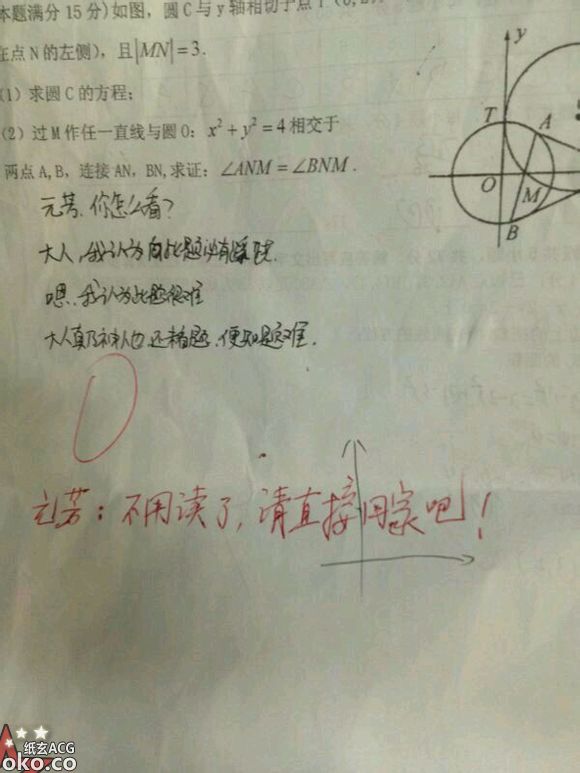 本题满分 15 分)如图，圆 C 与 y 轴相切于点 T (0,2)
在点 N 的左侧)，且|MN|=3.
(1) 求圆 C 的方程；
(2) 过 M 作任一直线与圆 O: x²+y²=4 相交于
两点 A,B，连接 AN，BN,求证：∠ANM=∠BNM.
y
T
A
O
M
B
元芳，你怎么看？
大人，我认为此题必有蹊跷.
嗯，我认为此题很难
大人真乃神人也，还看题，便知题难.
0
元芳：不用读了，请直接回家吧！
纸玄ACG
oko.co